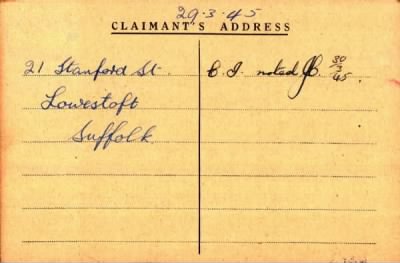 29.3.45
CLAIMANT'S ADDRESS
21 Stanford St.
Lowestoft
Suffolk
C. I. noted 30/3/45